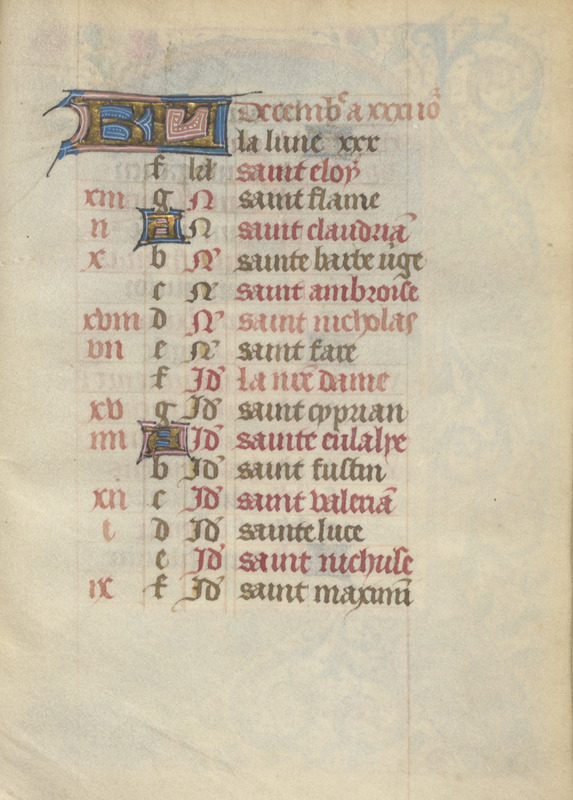 KL Decembre a xxxi io
la lune xxx
f kl saint eloy
xiii g N saint flame
ii A N saint claudriã
x b N sainte barbe uige
c N saint ambroise
xviii d N saint nicholas
vii e N saint fare
f Id la nre dame
xv g Id saint cyprian
iiii A Id sainte eulalye
b Id saint fustin
xii c Id saint valeriã
i d Id sainte luce
e Id saint nichuise
ix f Id saint maximi